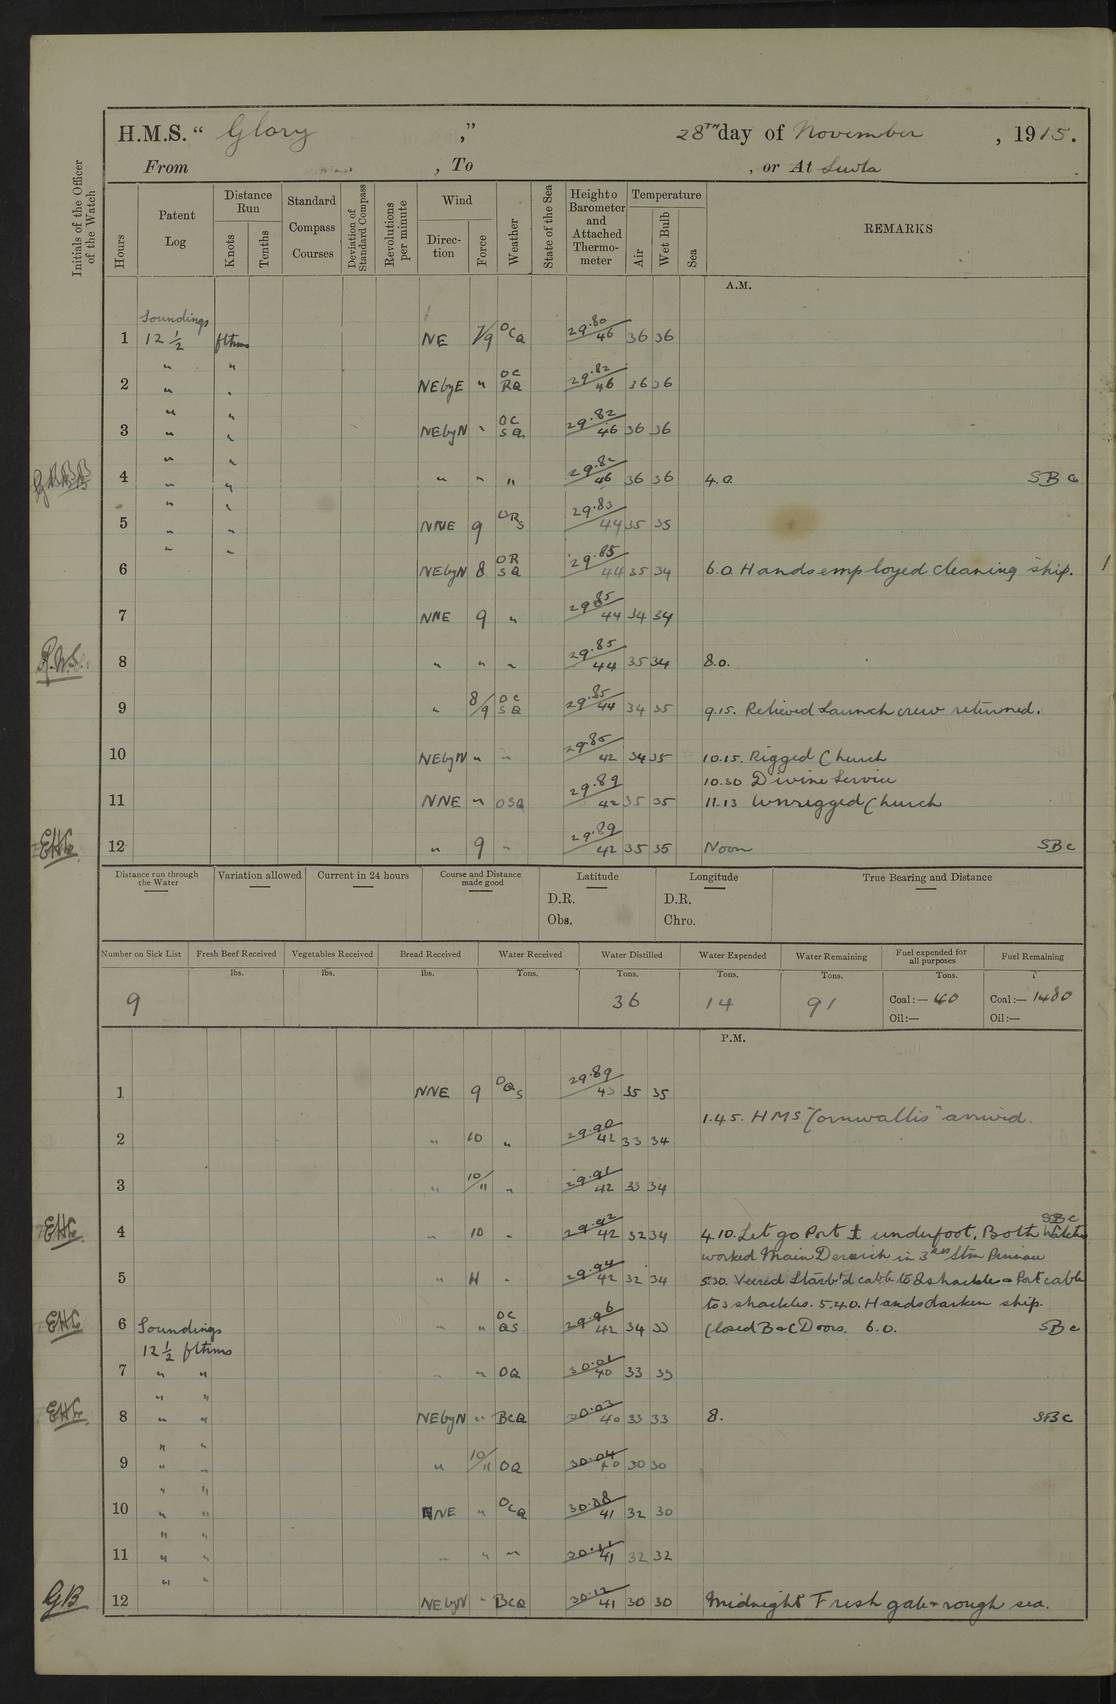 H.M.S. “ Glory ,” 28TH day of November , 1915.
From , To , or At Suvla
Initials of the Officer of the Watch
Hours
Patent Log
Distance Run
Knots
Tenths
Standard Compass Courses
Deviation of Standard Compass
Revolutions per minute
Wind
Direction
Force
Weather
State of the Sea
Height of Barometer and Attached Thermometer
Temperature
Air
Wet Bulb
Sea
REMARKS
A.M.
Soundings
1 12 1/2 fthms NE 7/9 OCQ 29.80/46 36 36
" "
2 " " NEbyE " OC RQ 29.82/46 36 36
" "
3 " " NEbyN " OC SQ 29.82/46 36 36
" "
4 " " " " " 29.82/46 36 36 4.0. SBC
" "
5 " " NNE 9 ORS 29.83/44 35 35
" "
6 NEbyN 8 OR SQ 29.85/44 35 34 6.0 Hands employed cleaning ship.
7 NNE 9 " 29.85/44 34 34
8 " " " 29.85/44 35 34 8.0.
9 " 8/9 OC SQ 29.85/44 34 35 9.15. Relieved Launch crew returned.
10 NEbyN " " 29.85/42 34 35 10.15. Rigged Church
10.30 Divine Service
11 NNE " OSQ 29.89/42 35 35 11.13 Unrigged Church
EHC 12 " 9 " 29.89/42 35 35 Noon SBC
Distance run through the Water
Variation allowed
Current in 24 hours
Course and Distance made good
Latitude
D.R.
Obs.
Longitude
D.R.
Chro.
True Bearing and Distance
Number on Sick List
Fresh Beef Received
Vegetables Received
Bread Received
Water Received
Water Distilled
Water Expended
Water Remaining
Fuel expended for all purposes
Fuel Remaining
lbs. lbs. lbs. Tons. Tons. Tons. Tons. Tons.
9 36 14 91 Coal:— 40 Coal:— 1480
Oil:— Oil:—
P.M.
1 NNE 9 OQS 29.89/43 35 35
1.45. HMS "Cornwallis" arrived.
2 " 10 " 29.90/42 33 34
3 " 10/11 " 29.91/42 33 34
SBC
EHC 4 " 10 " 29.92/42 32 34 4.10. Let go Port underfoot. Both Watches
worked Main Derrick in 3rd Stm Pinnace
5 " 11 " 29.94/42 32 34 5.30. Veered Starb'd cable to 8 shackles & Port cable
to 3 shackles. 5.40. Hands darken ship.
EHC 6 Soundings " " OC QS 29.96/42 34 33 Closed B & C Doors. 6.0. SBC
12 1/2 fthms
7 " " " " OQ 30.01/40 33 33
" "
EHC 8 " " NEbyN " BCQ 30.03/40 33 33 8. SBC
" "
9 " " " 10/11 OQ 30.04/40 30 30
" "
10 " " NNE " OCQ 30.08/41 32 30
" "
11 " " " " " 30.11/41 32 32
" "
GB 12 NEbyN " BCQ 30.12/41 30 30 Midnight Fresh gale & rough sea.